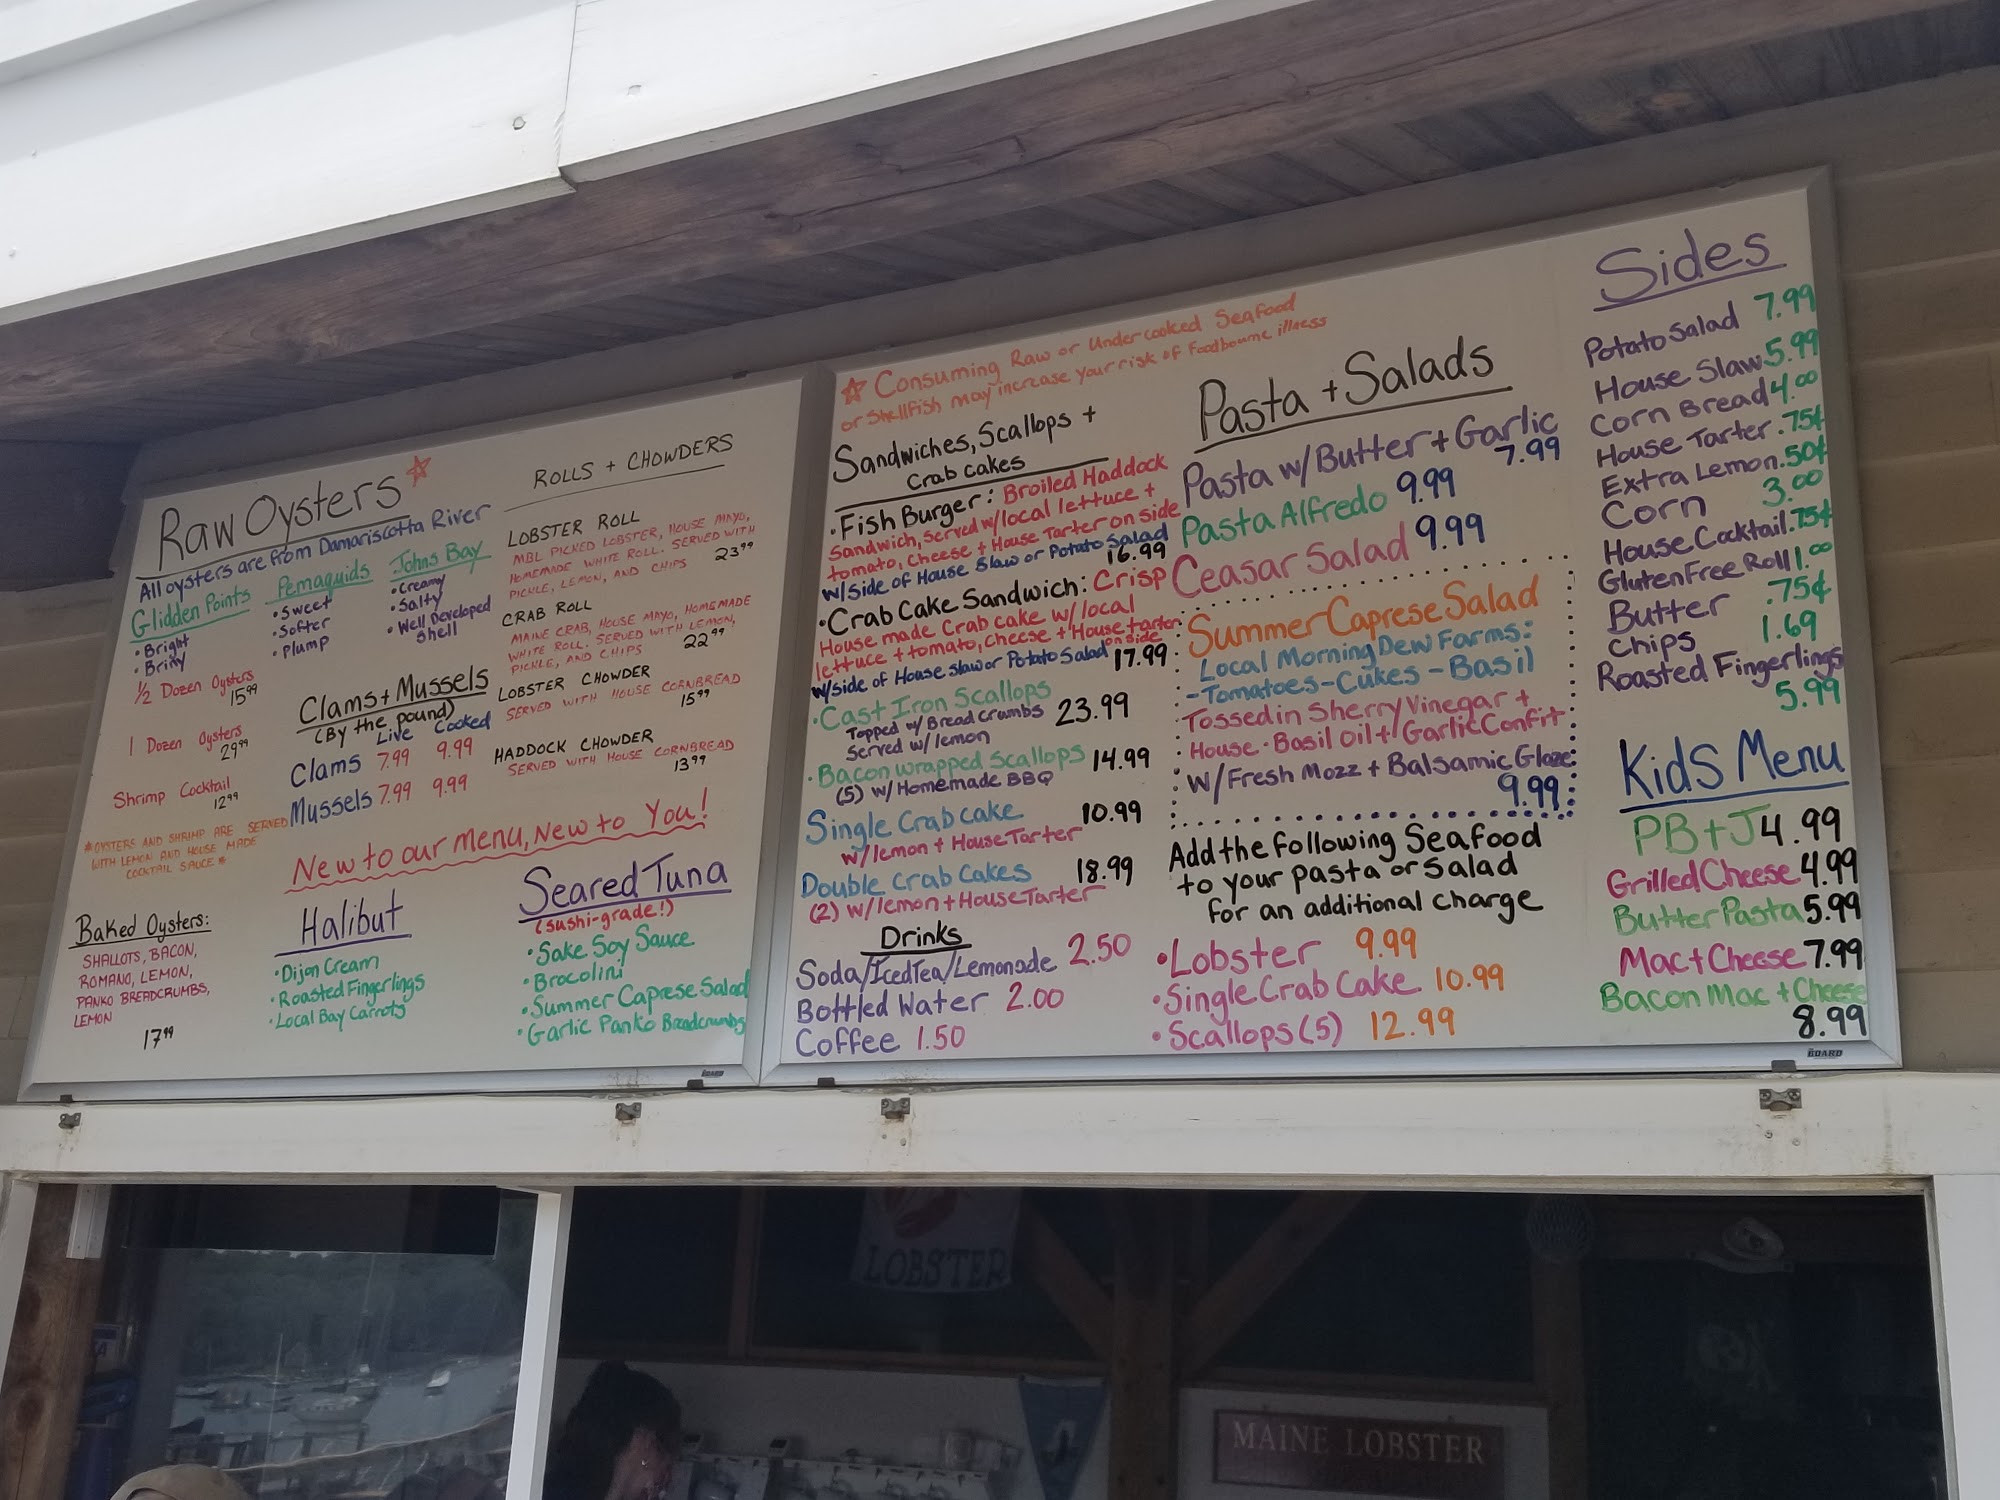 Raw Oysters ☆
All oysters are from Damariscotta River
Glidden Points
• Bright
• Briny
Pemaquids
• Sweet
• Softer
• Plump
Johns Bay
• Creamy
• Salty
• Well Developed
Shell
1/2 Dozen Oysters
15.99
1 Dozen Oysters
29.99
Shrimp Cocktail
12.99
*OYSTERS AND SHRIMP ARE SERVED
WITH LEMON AND HOUSE MADE
COCKTAIL SAUCE*
Baked Oysters:
SHALLOTS, BACON,
ROMANO, LEMON,
PANKO BREADCRUMBS,
LEMON
17.99
Clams + Mussels
(By the pound)
Live Cooked
Clams 7.99 9.99
Mussels 7.99 9.99
ROLLS + CHOWDERS
LOBSTER ROLL
MBL PICKED LOBSTER, HOUSE MAYO,
HOMEMADE WHITE ROLL. SERVED WITH
PICKLE, LEMON, AND CHIPS 23.99
CRAB ROLL
MAINE CRAB, HOUSE MAYO, HOMEMADE
WHITE ROLL. SERVED WITH LEMON,
PICKLE, AND CHIPS 22.99
LOBSTER CHOWDER
SERVED WITH HOUSE CORNBREAD
15.99
HADDOCK CHOWDER
SERVED WITH HOUSE CORNBREAD
13.99
New to our menu, New to You!
Halibut
• Dijon Cream
• Roasted Fingerlings
• Local Bay Carrots
Seared Tuna
(sushi-grade!)
• Sake Soy Sauce
• Brocolini
• Summer Caprese Salad
• Garlic Panko Breadcrumbs
BOARD
☆ Consuming Raw or Undercooked Seafood
or Shellfish may increase your risk of Foodbourne illness
Sandwiches, Scallops +
Crab cakes
• Fish Burger: Broiled Haddock
Sandwich, served w/local lettuce +
tomato, cheese + House Tarter on side
w/side of House Slaw or Potato Salad
16.99
• Crab Cake Sandwich: Crisp
House made Crab cake w/ local
lettuce + tomato, cheese + House tarter
on side
w/side of House slaw or Potato Salad 17.99
• Cast Iron Scallops
Topped w/ Bread Crumbs 23.99
Served w/ lemon
• Bacon wrapped Scallops 14.99
(5) w/ Homemade BBQ
Single Crab cake 10.99
w/lemon + House Tarter
Double Crab Cakes 18.99
(2) w/lemon + House Tarter
Drinks
Soda/Iced Tea/Lemonade 2.50
Bottled Water 2.00
Coffee 1.50
Pasta + Salads
Pasta w/ Butter + Garlic
7.99
Pasta Alfredo 9.99
Ceasar Salad 9.99
Summer Caprese Salad
Local Morning Dew Farms:
-Tomatoes-Cukes-Basil
Tossed in Sherry Vinegar +
House Basil Oil + Garlic Confit
w/ Fresh Mozz + Balsamic Glaze
9.99
Add the following Seafood
to your pasta or Salad
for an additional charge
• Lobster 9.99
• Single Crab Cake 10.99
• Scallops (5) 12.99
Sides
Potato Salad 7.99
House Slaw 5.99
Corn Bread 4.00
House Tarter .75¢
Extra Lemon .50¢
Corn 3.00
House Cocktail .75¢
Gluten Free Roll 1.00
Butter .75¢
Chips 1.69
Roasted Fingerlings
5.99
Kids Menu
PB+J 4.99
Grilled Cheese 4.99
Butter Pasta 5.99
Mac + Cheese 7.99
Bacon Mac + Cheese
8.99
BOARD
LOBSTER
MAINE LOBSTER